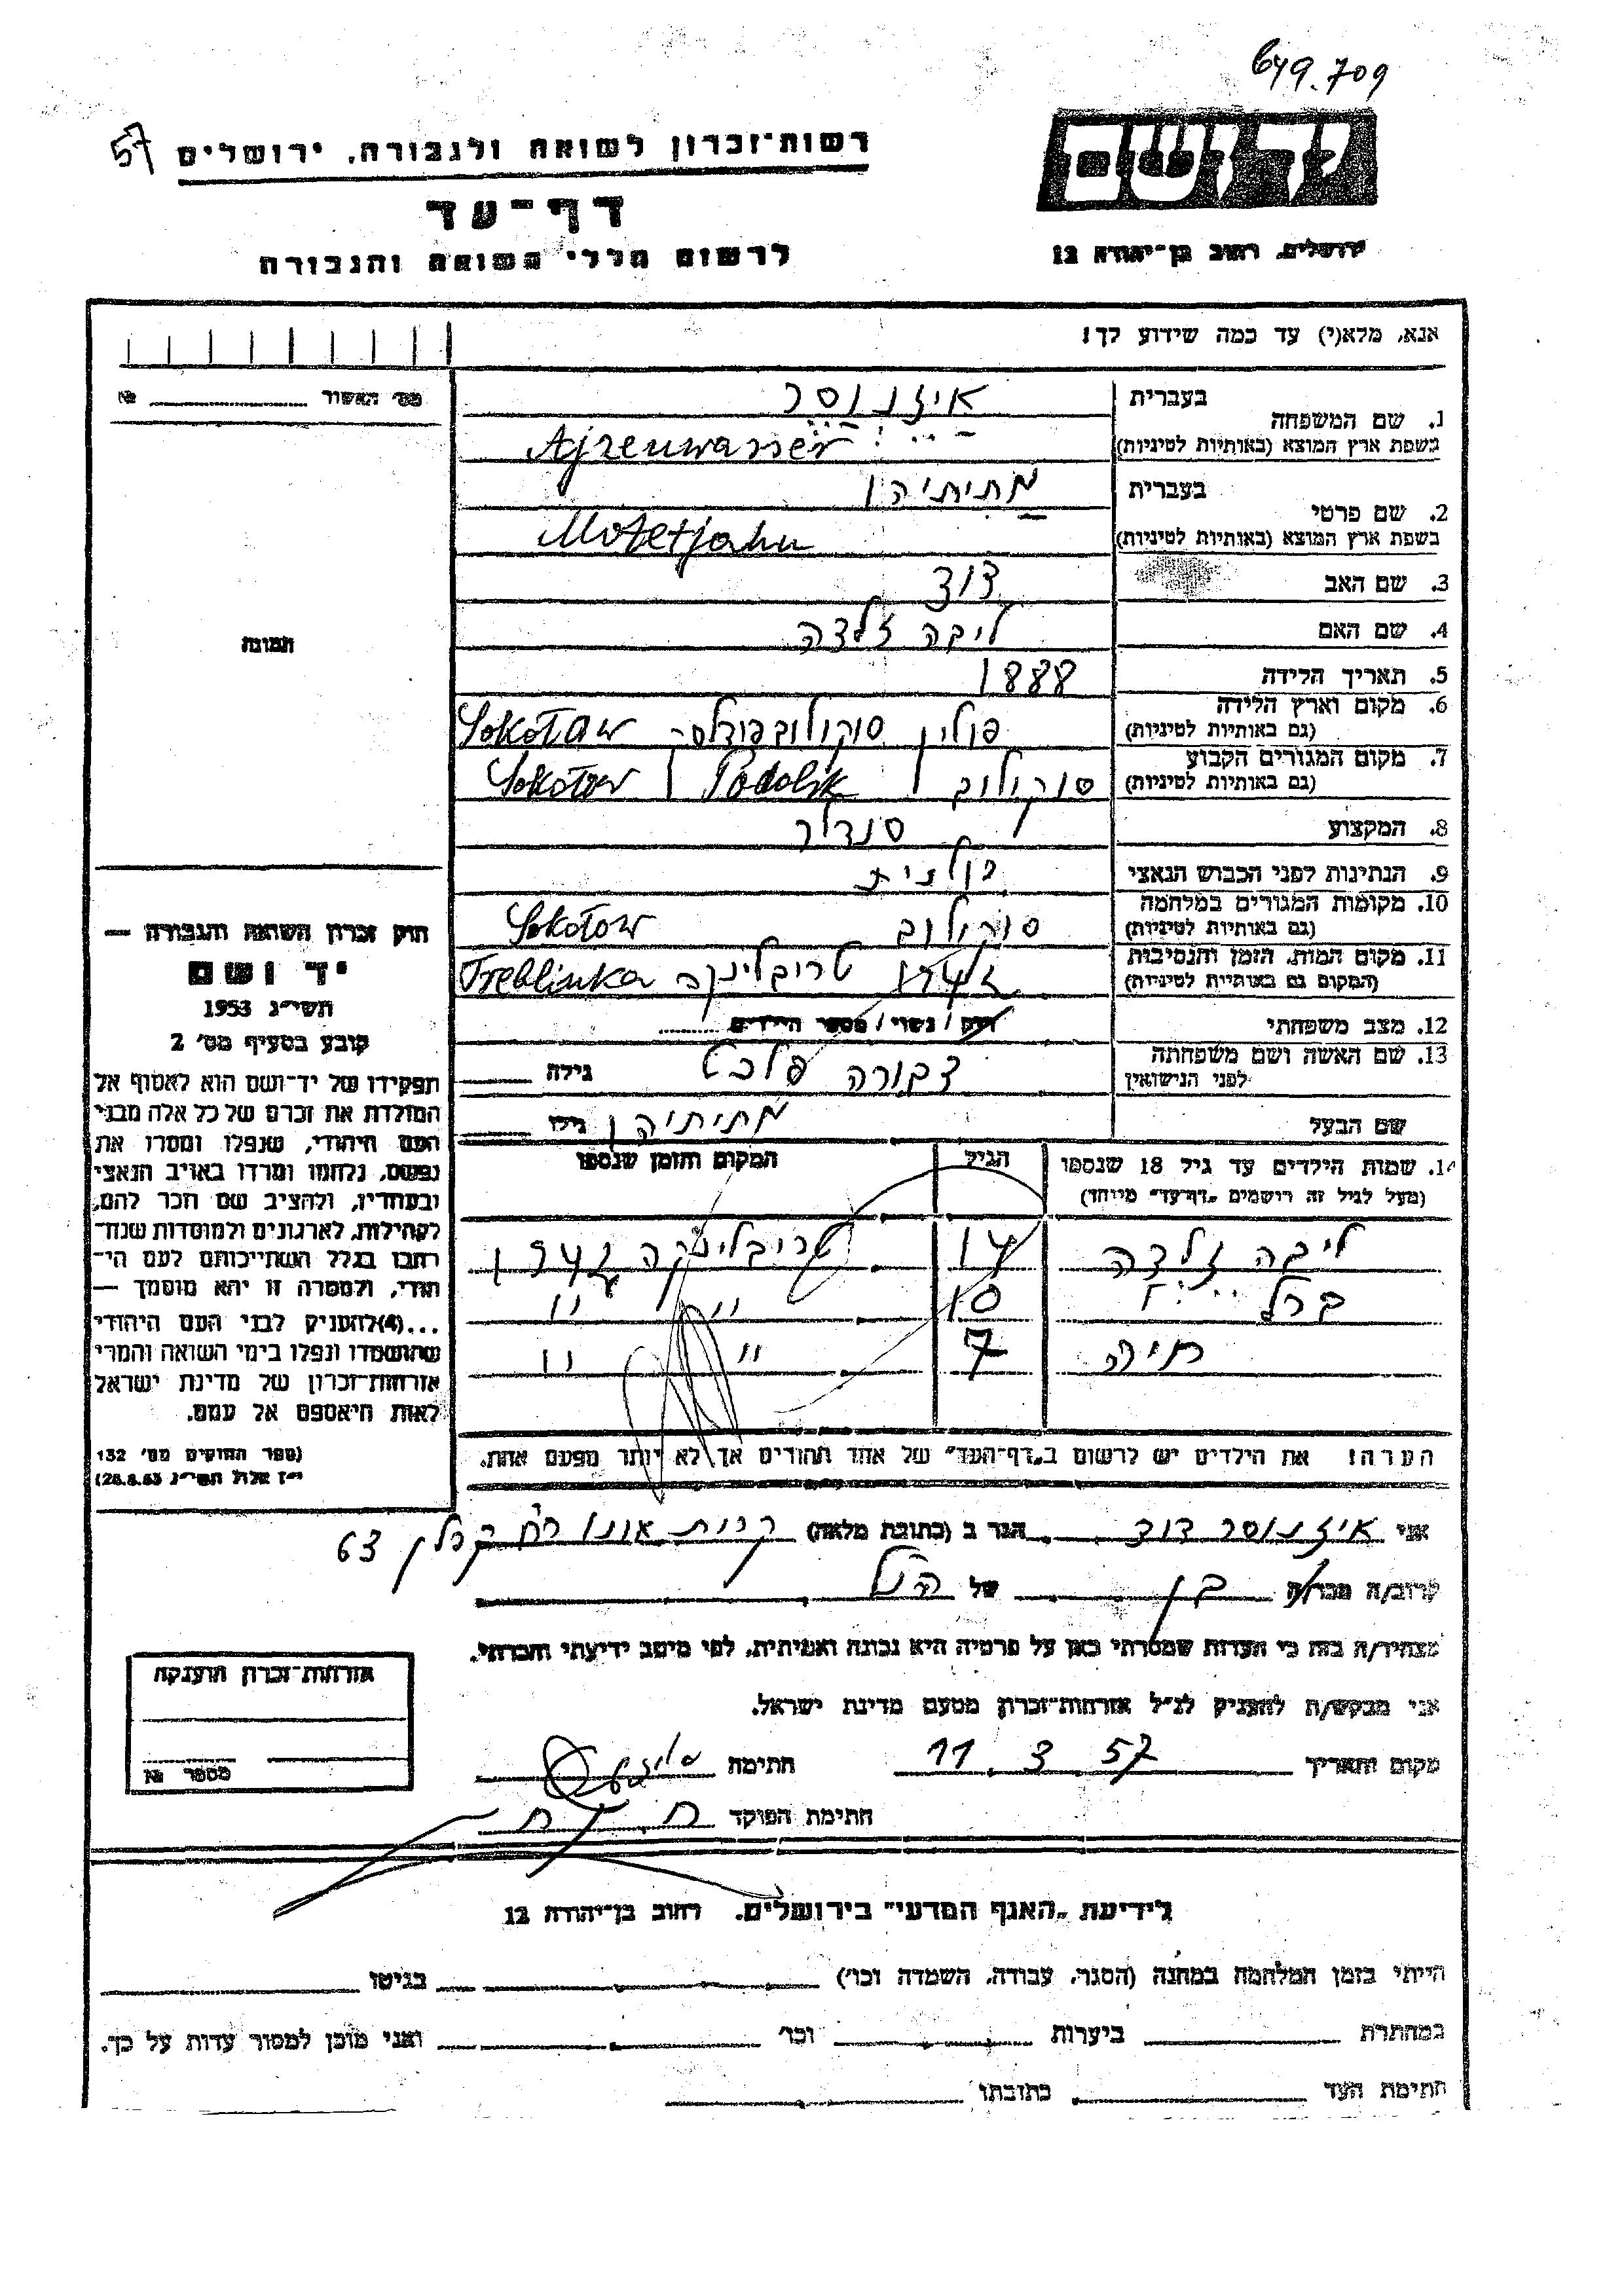 649.709
יד ושם
ירושלים, רחוב בן־יהודה 12
57
רשות־זכרון לשואה ולגבורה, ירושלים
דף־עד
לרשום חללי השואה והגבורה
אנא, מלא(י) עד כמה שידוע לך!
מס׳ האשור № 
1. שם המשפחה
בעברית איזנוסר
בשפת ארץ המוצא (באותיות לטיניות) Ajzenwasser
2. שם פרטי
בעברית מתיתיהו
בשפת ארץ המוצא (באותיות לטיניות) Motetjahu
3. שם האב דוד
4. שם האם ליבה זלדה
5. תאריך הלידה 1888
6. מקום וארץ הלידה (גם באותיות לטיניות) פולין Sokołow
7. מקום המגורים הקבוע (גם באותיות לטיניות) סוקולוב Podolsk Sokołow
8. המקצוע סנדלר
9. הנתינות לפני הכבוש הנאצי פולנית
10. מקומות המגורים במלחמה (גם באותיות לטיניות) סוקולוב Sokołow
11. מקום המות, הזמן והנסיבות (המקום גם באותיות לטיניות) 1942 טריבלינקה Treblinka
12. מצב משפחתי רווק / נשוי / מספר הילדים
13. שם האשה ושם משפחתה לפני הנישואין דבורה גילה
שם הבעל מתיתיהו גילו
14. שמות הילדים עד גיל 18 שנספו
(מעל לגיל זה רושמים „דף־עד״ מיוחד)
הגיל
המקום והזמן שנספו
ליבה זלדה 14 טריבלינקה 1942
ברל 10 " "
חיה 7 " "
הערה! את הילדים יש לרשום ב„דף־העד״ של אחד ההורים אך לא יותר מפעם אחת.
תמונה
חוק זכרון השואה והגבורה —
יד ושם
תשי״ג 1953
קובע בסעיף מס׳ 2
תפקידו של יד־ושם הוא לאסוף אל
המולדת את זכרם של כל אלה מבני
העם היהודי, שנפלו ומסרו את
נפשם, נלחמו ומרדו באויב הנאצי
ובעוזריו, ולהציב שם וזכר להם,
לקהילות, לארגונים ולמוסדות שנח־
רבו בגלל השתייכותם לעם הי־
הודי, ולמטרה זו יהא מוסמך —
...(4)להעניק לבני העם היהודי
שהושמדו ונפלו בימי השואה והמרי
אזרחות־זכרון של מדינת ישראל
לאות היאספם אל עמם.
(ספר החוקים מס׳ 132
י״ז אלול תשי״ג 28.8.53)
אני איזנוסר דוד הגר ב (כתובת מלאה) קרית אונו רח׳ 63
קרוב/ה מכר/ה בן של הנ״ל
מצהיר/ה בזה כי העדות שמסרתי כאן על פרטיה היא נכונה ואמיתית, לפי מיטב ידיעתי והכרתי.
אני מבקש/ת להעניק לנ״ל אזרחות־זכרון מטעם מדינת ישראל.
מקום ותאריך 11.3.57 חתימה
חתימת הפוקד
אזרחות־זכרון הוענקה
מספר №
לידיעת „האגף המדעי״ בירושלים, רחוב בן־יהודה 12
הייתי בזמן המלחמה במחנה (הסגר, עבודה, השמדה וכו׳) בגיטו
במחתרת ביערות וכו׳ ואני מוכן למסור עדות על כך.
חתימת העד כתובתו